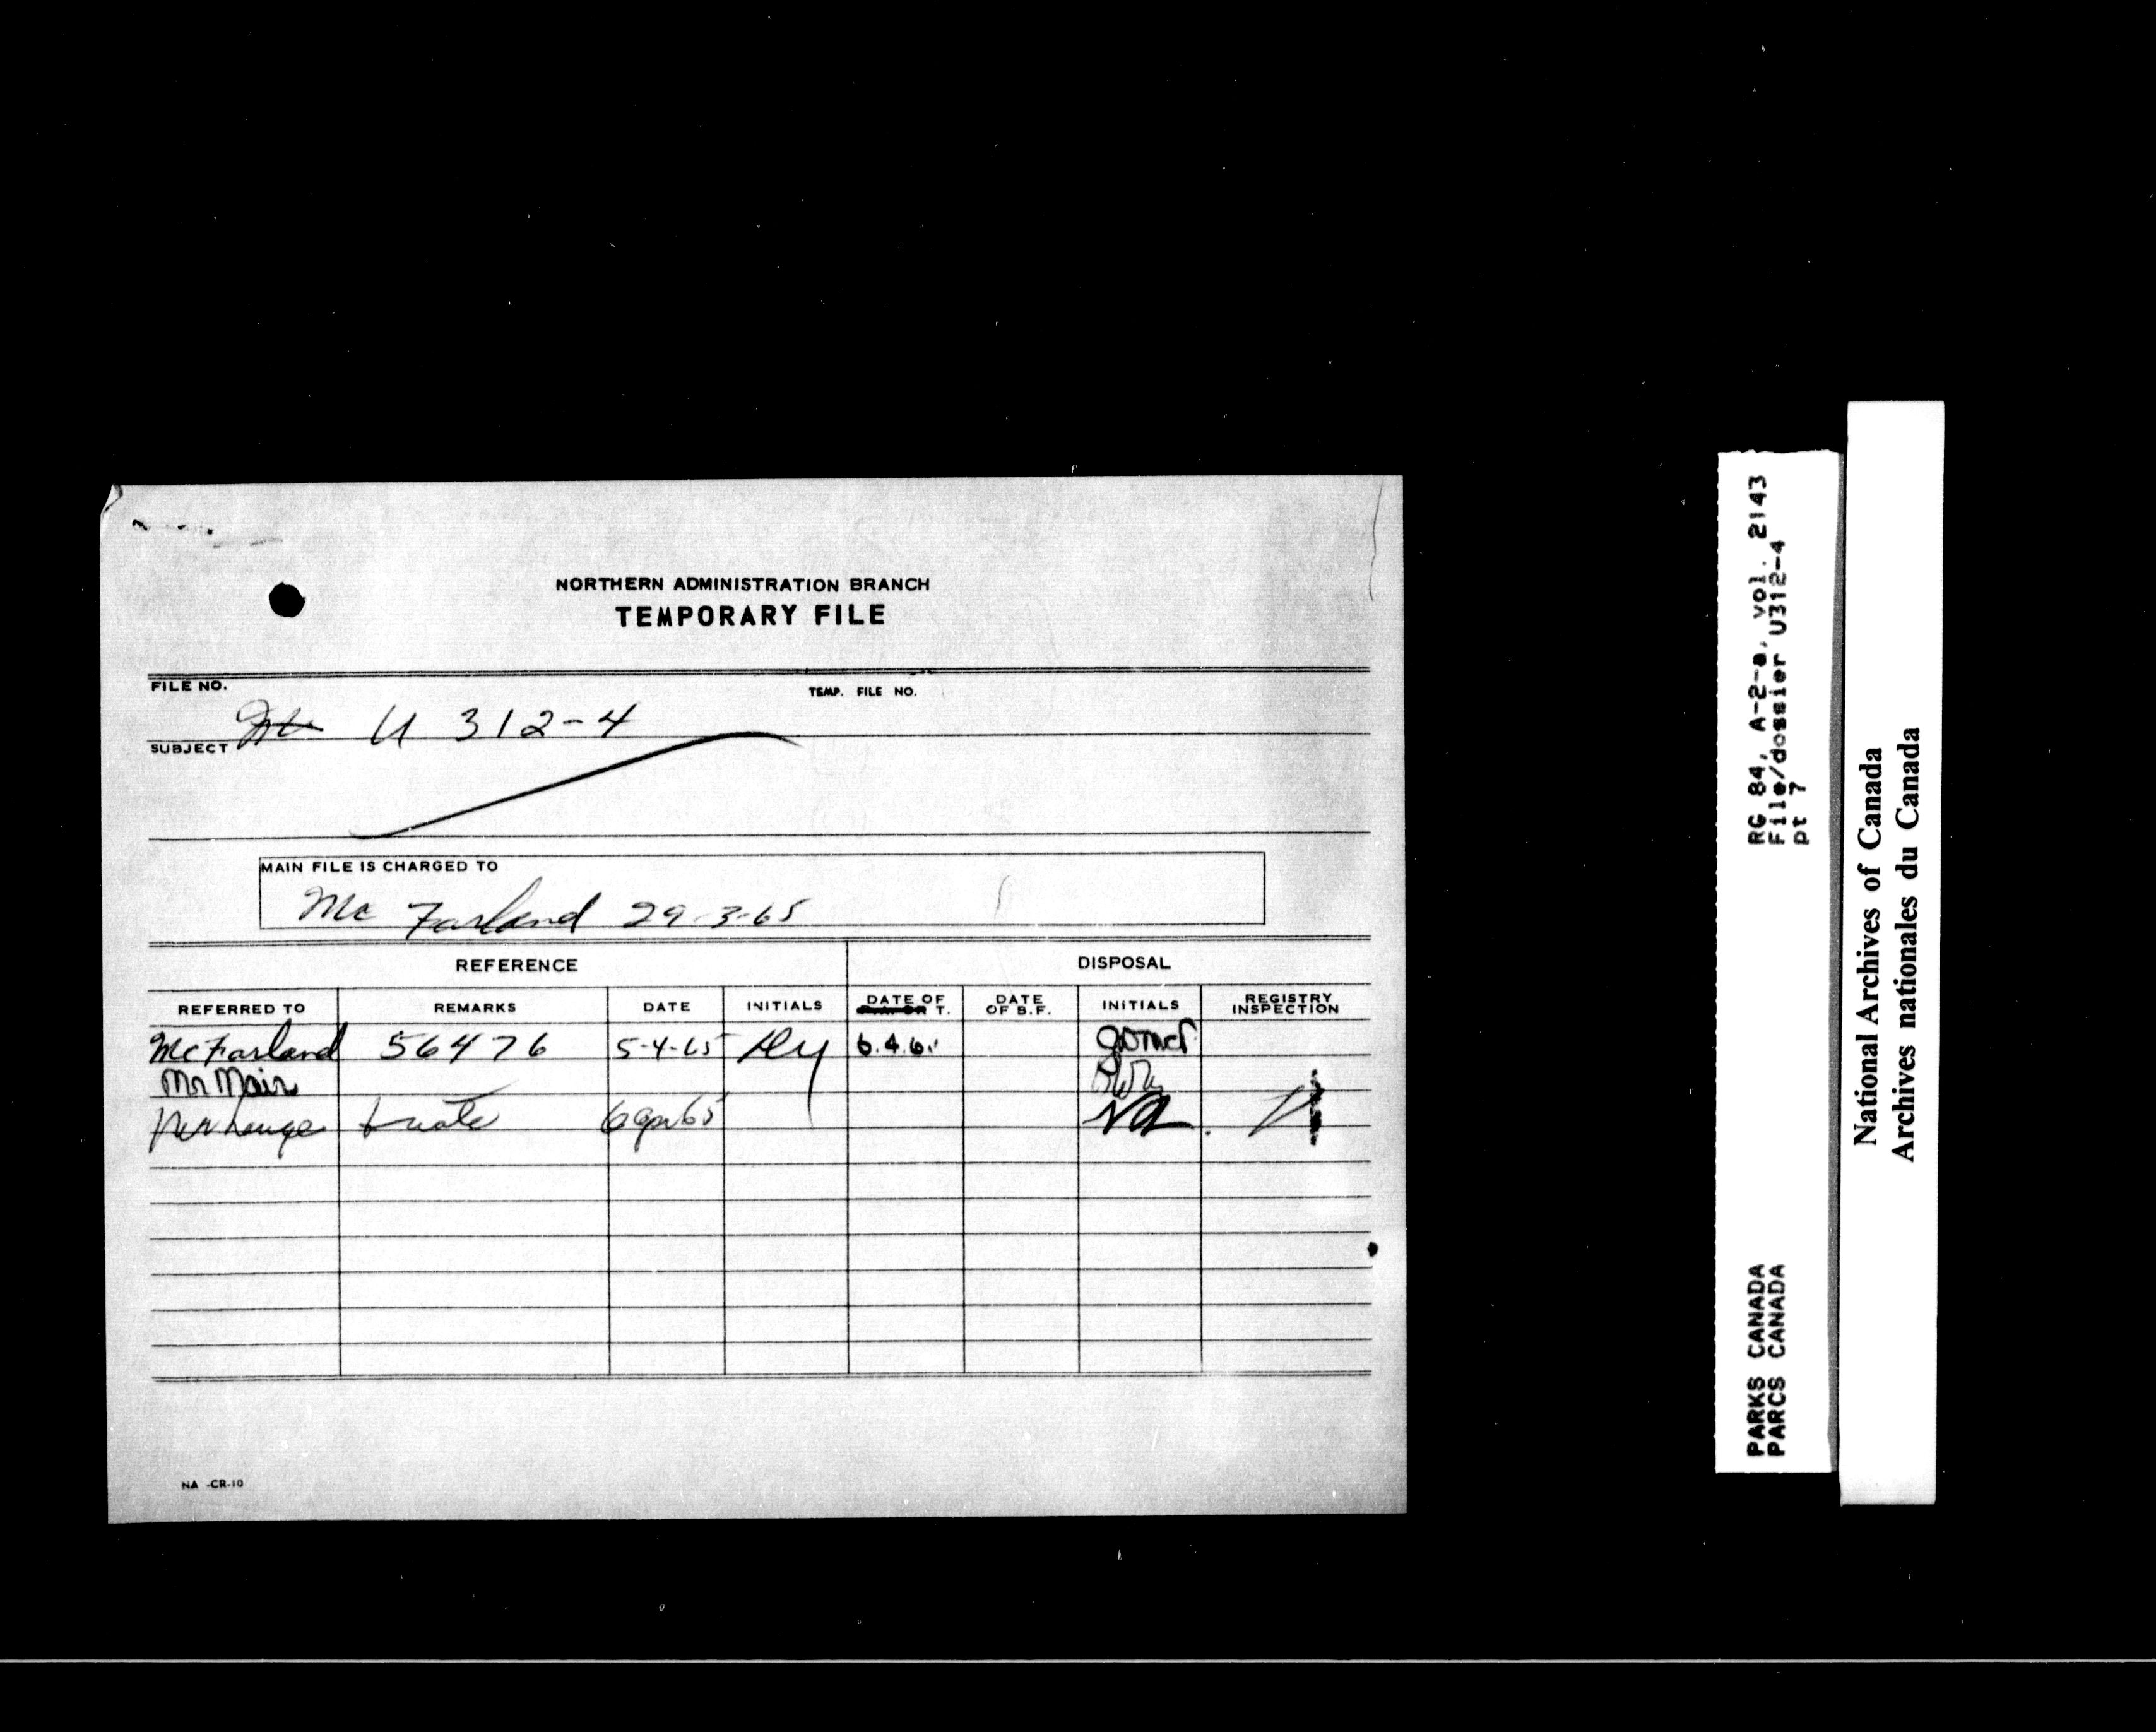 NORTHERN ADMINISTRATION BRANCH
TEMPORARY FILE
FILE NO.
TEMP. FILE NO.
U 312-4
SUBJECT
MAIN FILE IS CHARGED TO
Mc Farland 29-3-65
REFERENCE
DISPOSAL
REFERRED TO REMARKS DATE INITIALS DATE OF T. DATE OF B.F. INITIALS REGISTRY INSPECTION
McFarland 56476 5-4-65 6.4.6
Mr Mair
6 Apr 65
NA -CR-10
RG 84, A-2-a, vol. 2143
File/dossier U312-4
pt 7
PARKS CANADA
PARCS CANADA
National Archives of Canada
Archives nationales du Canada